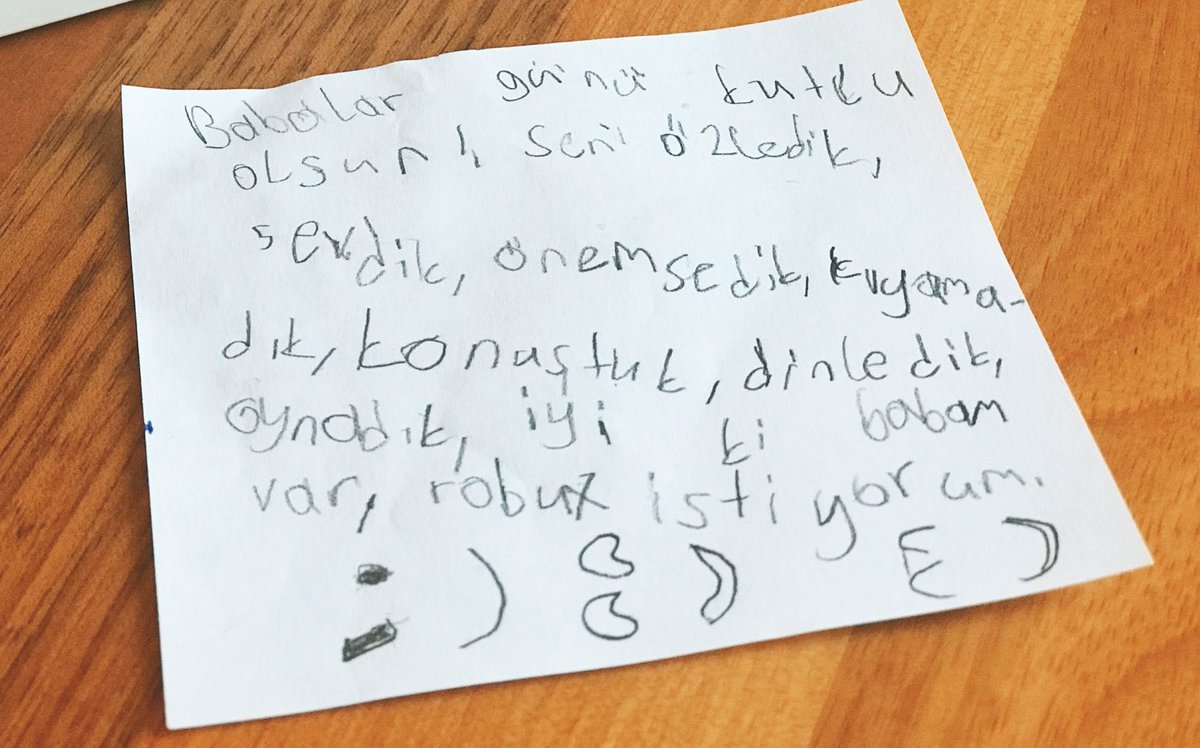 Babalar günü kutlu
olsun!, seni özledik,
sevdik, önemsedik, kıyama-
dık, konuştuk, dinledik,
oynadık, iyi ki babam
var, robux istiyorum.
:) :) :)